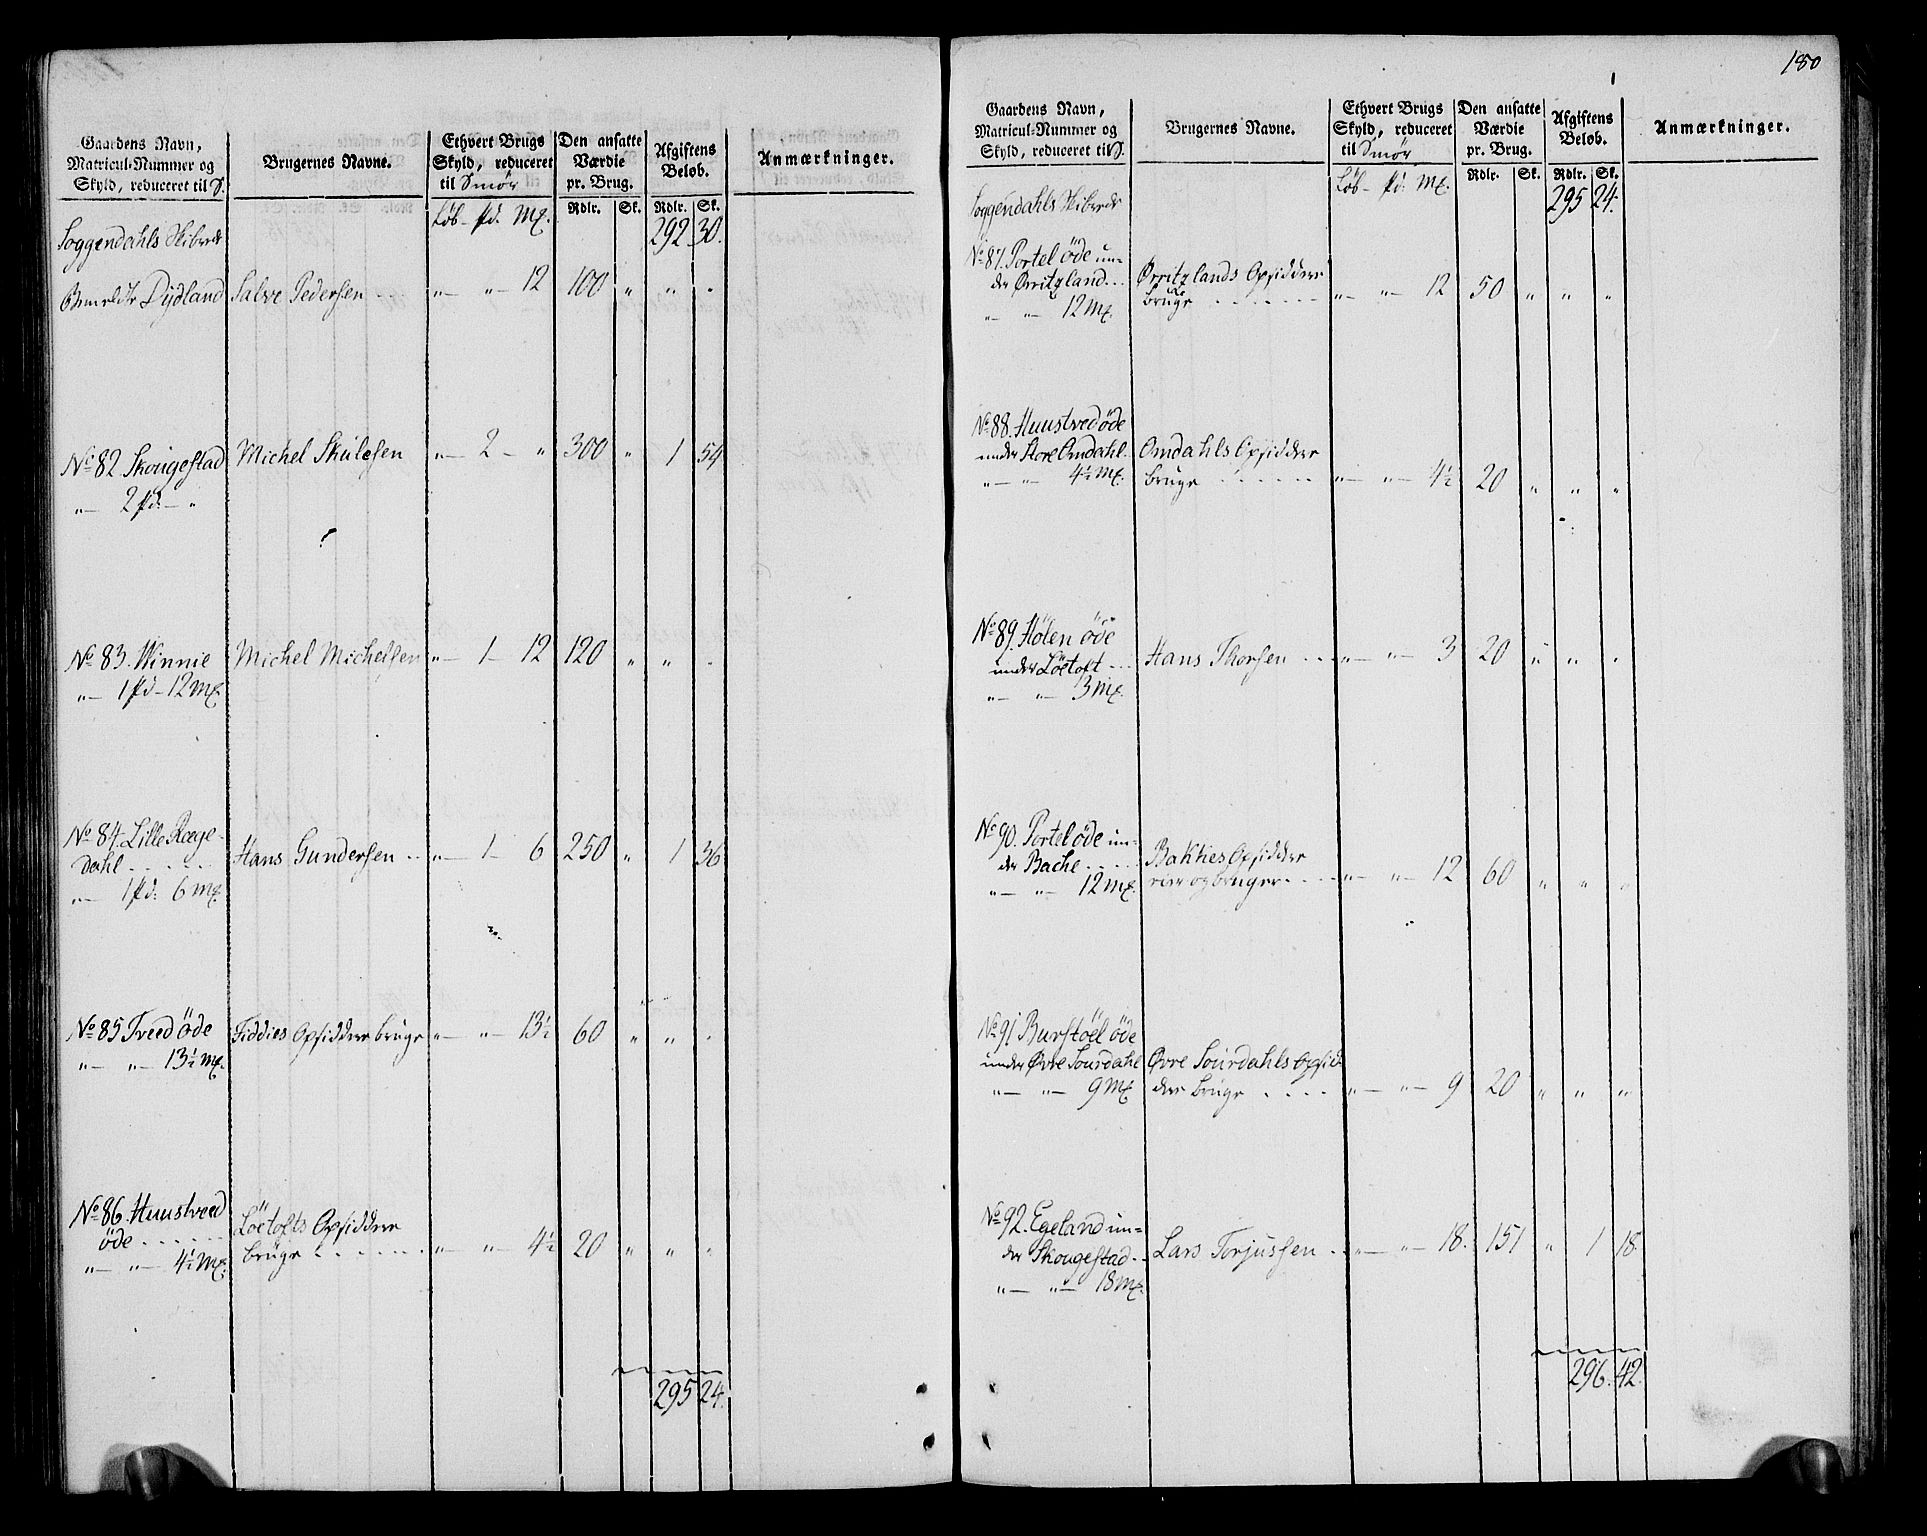 180
Gaardens Navn,
Matricul-Nummer og
Skyld, reduceret til S.
Brugernes Navne.
Ethvert Brugs
Skyld, reduceret
til Smör
Den ansatte
Værdie
pr. Brug.
Afgiftens
Beløb.
Anmærkninger.
Rdlr. Sk. Rdlr. Sk.
Løb - Pd. Mk.
Soggendahls Skibrede 292 30.
Dydland Salve Pedersen „ „ 12 100 „ „ „
No 82 Skougestad Michel Skulesen „ 2 - „ 300 „ 1 54
„ 2 Pd. - „
No 83. Winnie Michel Michelsen „ 1 - 12 120 „ „ „
„ 1 Pd - 12 Mk.
No 84. Lille Ræge-
dahl Hans Gundersen „ 1 - 6 250 „ 1 36
„ 1 Pd: 6 Mk.
No 85 Tveed öde Fiddies Opsiddere bruge „ „ 13½ 60 „ „ „
„ „ 13½ Mk.
No 86. Huustveed Löetofts Opsiddere
öde bruge „ „ 4½ 20 „ „ „
„ „ 4½ Mk.
295 24.
Gaardens Navn,
Matricul-Nummer og
Skyld, reduceret til S.
Brugernes Navne.
Ethvert Brugs
Skyld, reduceret
til Smör
Den ansatte
Værdie
pr. Brug.
Afgiftens
Beløb.
Anmærkninger.
Rdlr. Sk. Rdlr. Sk.
Løb - Pd: Mk.
Soggendahls Skibrede 295 24.
No 87. Portel öde un-
der Ørritzland Ørritzlands Opsiddere
„ „ 12 Mk. bruge „ „ 12 50 „ „ „
No 88. Huustved öde
under Store Omdahl. Omdahls Opsiddere
„ „ 4½ Mk. bruge „ „ 4½ 20 „ „ „
No 89. Hölen öde
under Löetoft Hans Thorsen „ „ 3 20 „ „ „
„ „ 3 Mk.
No 90. Portel öde un-
der Bache Bakkies Opsidder
„ „ 12 Mk. eier og bruger „ „ 12 60 „ „ „
No 91 Burstöel öde
under Øvre Sourdahl Øvre Sourdahls Opsid-
„ „ 9 Mk dere bruge „ „ 9 20 „ „ „
No 92. Egeland un-
der Skougestad Lars Torjussen „ „ 18. 151 „ 1 18.
„ „ 18 Mk.
296. 42.